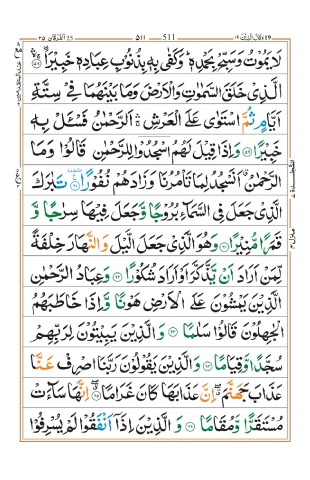 وقال الذين ١٩ 511 ٥١١ الفرقان ٢٥
لَا يَمُوْتُ وَسَبِّحْ بِحَمْدِهٖ ؕ وَكَفٰى بِهٖ بِذُنُوْبِ عِبَادِهٖ خَبِيْرَا ۛۚ ۙ‏ ﴿۵۸﴾
الَّذِىْ خَلَقَ السَّمٰوٰتِ وَالْاَرْضَ وَمَا بَيْنَهُمَا فِىْ سِتَّةِ
اَيَّامٍ ثُمَّ اسْتَوٰى عَلَى الْعَرْشِ ۛۚ اَلرَّحْمٰنُ فَسْئَلْ بِهٖ
خَبِيْرًا ﴿۵۹﴾ وَاِذَا قِيْلَ لَهُمُ اسْجُدُوْا لِلرَّحْمٰنِ قَالُوْا وَمَا
الرَّحْمٰنُ اَنَسْجُدُ لِمَا تَاْمُرُنَا وَزَادَهُمْ نُفُوْرًا ﴿۶۰﴾ تَبٰرَكَ
الَّذِىْ جَعَلَ فِى السَّمَآءِ بُرُوْجًا وَّجَعَلَ فِيْهَا سِرٰجًا وَّ
قَمَرًا مُّنِيْرًا ﴿۶۱﴾ وَهُوَ الَّذِىْ جَعَلَ الَّيْلَ وَالنَّهَارَ خِلْفَةً
لِّمَنْ اَرَادَ اَنْ يَّذَّكَّرَ اَوْ اَرَادَ شُكُوْرًا ﴿۶۲﴾ وَعِبَادُ الرَّحْمٰنِ
الَّذِيْنَ يَمْشُوْنَ عَلَى الْاَرْضِ هَوْنًا وَّاِذَا خَاطَبَهُمُ
الْجٰهِلُوْنَ قَالُوْا سَلٰمًا ﴿۶۳﴾ وَالَّذِيْنَ يَبِيْتُوْنَ لِرَبِّهِمْ
سُجَّدًا وَّقِيَامًا ﴿۶۴﴾ وَالَّذِيْنَ يَقُوْلُوْنَ رَبَّنَا اصْرِفْ عَنَّا
عَذَابَ جَهَنَّمَ ۖ اِنَّ عَذَابَهَا كَانَ غَرَامًا ﴿۶۵﴾ اِنَّهَا سَآءَتْ
مُسْتَقَرًّا وَّمُقَامًا ﴿۶۶﴾ وَالَّذِيْنَ اِذَاۤ اَنْفَقُوْا لَمْ يُسْرِفُوْا